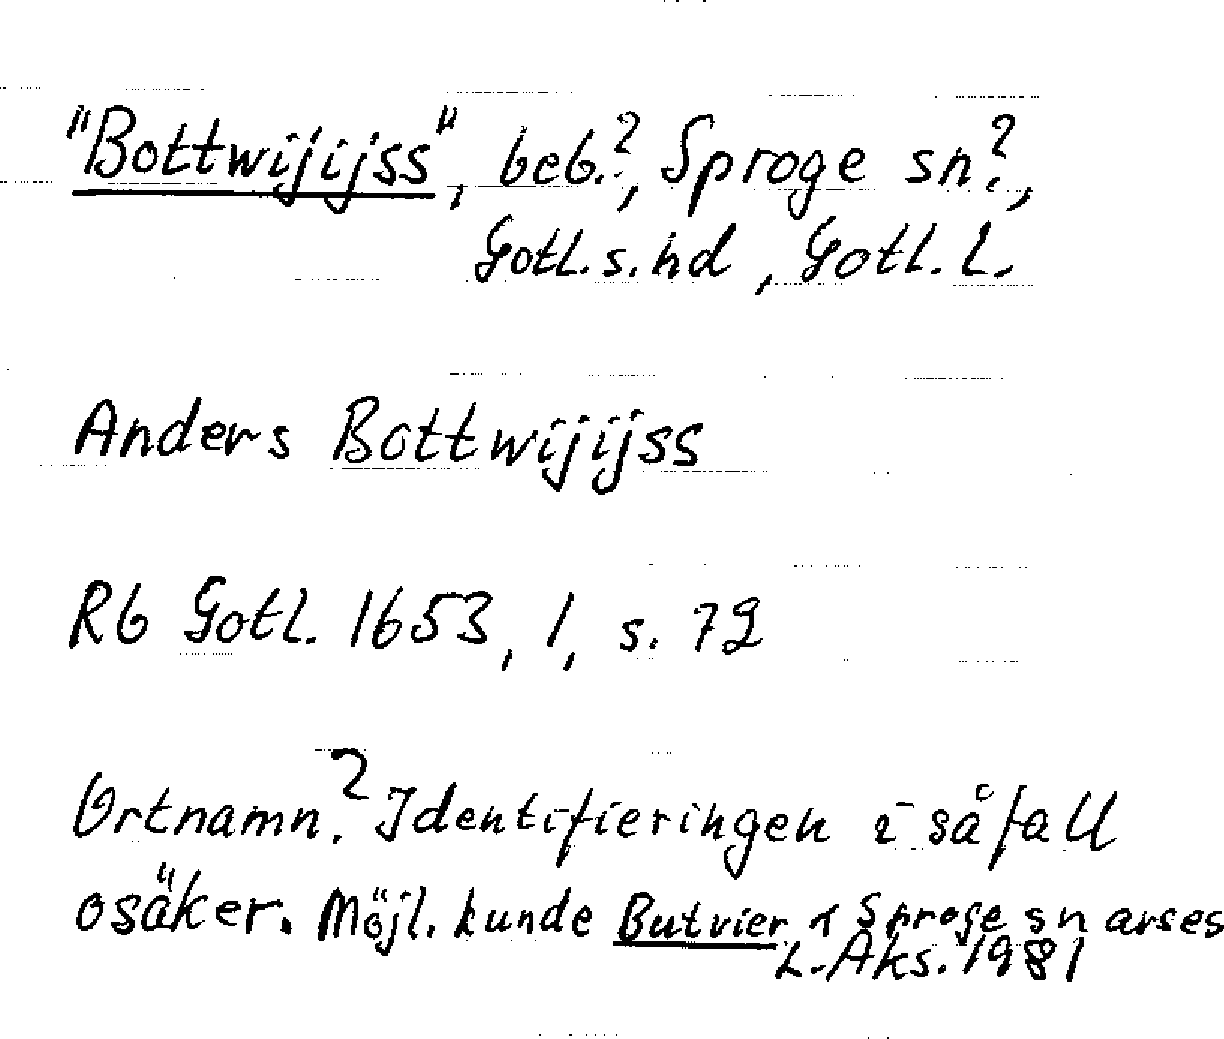 "Bottwijijss", beb.?, Sproge sn?,
Gotl. s. hd, Gotl. l.
Anders Bottwijijss
Rb Gotl. 1653, 1, s. 72
Ortnamn? Identifieringen i såfall
osäker. Möjl. kunde Butvier i Sproge sn avses
L. Aks. 1981